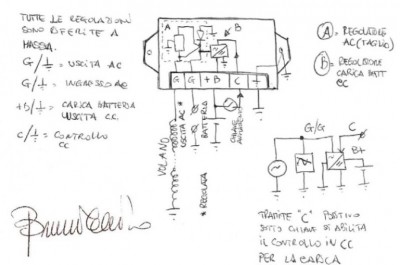 TUTTE LE REGOLAZIONI
SONO RIFERITE A
MASSA.
G/⏚ = USCITA AC
G/⏚ = INGRESSO AC
+B/⏚ = CARICA BATTERIA
USCITA CC.
C/⏚ = CONTROLLO
CC
A
B
G G +B C ⏚
VOLANO
USCITA AC *
BATTERIA
CHIAVE
* REGOLATA
A = REGOLATORE
AC (TAGLIO)
B = REGOLATORE
CARICA BATT
CC
G/G C
B+
TRAMITE "C" POSITIVO
SOTTO CHIAVE SI ABILITA
IL CONTROLLO IN CC
PER LA CARICA